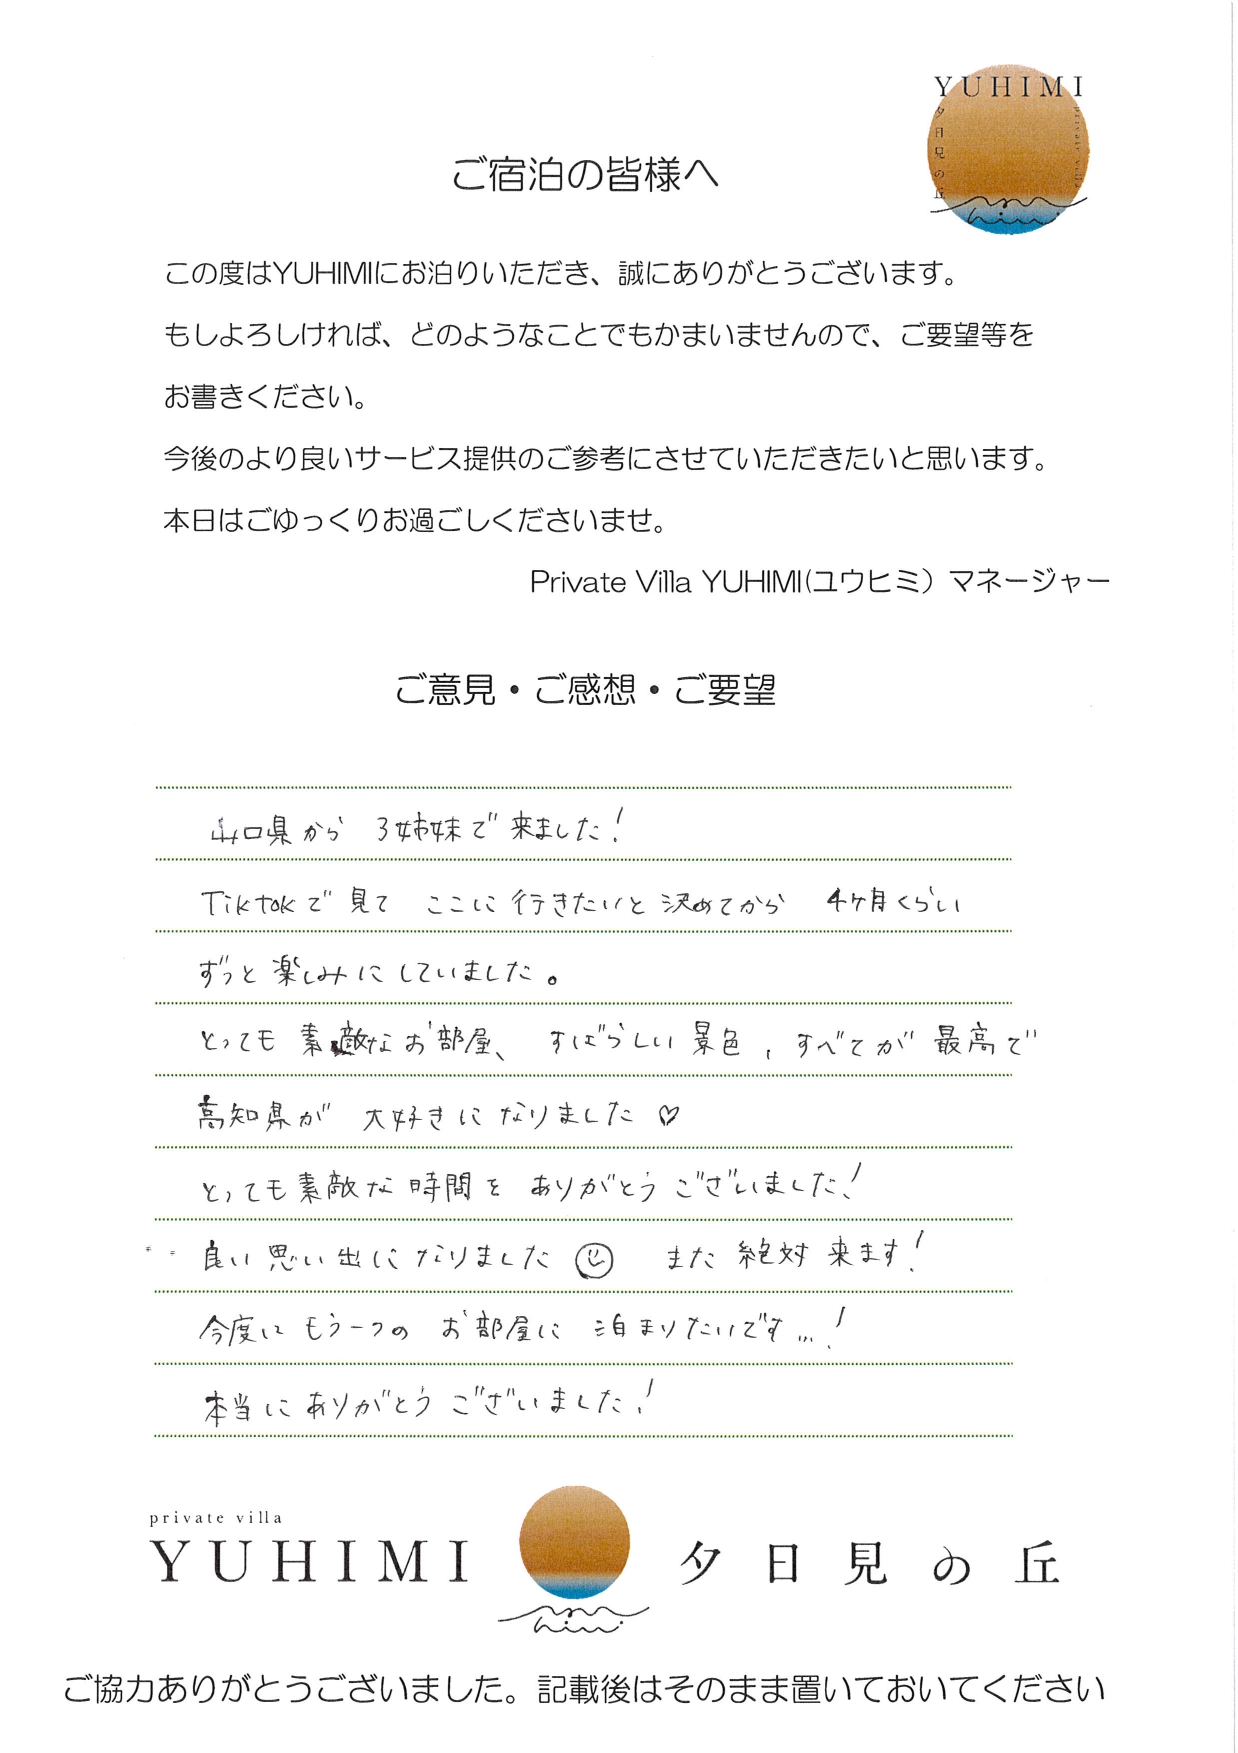 YUHIMI
夕日見の丘
private villa
ご宿泊の皆様へ
この度はYUHIMIにお泊りいただき、誠にありがとうございます。
もしよろしければ、どのようなことでもかまいませんので、ご要望等を
お書きください。
今後のより良いサービス提供のご参考にさせていただきたいと思います。
本日はごゆっくりお過ごしくださいませ。
Private Villa YUHIMI(ユウヒミ）マネージャー
ご意見・ご感想・ご要望
山口県から 3姉妹で来ました!
TikTokで見て ここに行きたいと決めてから 4ヶ月くらい
ずっと楽しみにしていました。
とっても素敵なお部屋、すばらしい景色、すべてが最高で
高知県が大好きになりました♡
とっても素敵な時間をありがとうございました!
良い思い出になりました☺ また絶対来ます!
今度はもう一つのお部屋に泊まりたいです…!
本当にありがとうございました!
private villa
YUHIMI 夕日見の丘
ご協力ありがとうございました。記載後はそのまま置いておいてください